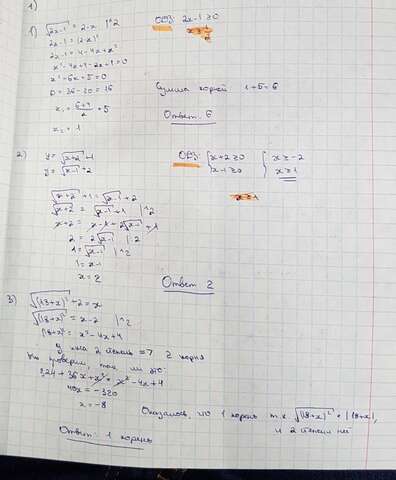 1)
1) √(2x-1) = 2-x |^2 ОДЗ: 2x-1 ≥ 0
2x-1 = (2-x)² x ≥ 1/2
2x-1 = 4-4x+x²
x²-4x+4-2x+1=0
x²-6x+5=0
D = 36-20 = 16
x₁ = (6+4)/2 = 5 Сумма корней 1+5=6
x₂ = 1 Ответ: 6
2) y = √(x+2)+1 ОДЗ: { x+2 ≥ 0 { x ≥ -2
y = √(x-1)+2 x-1 ≥ 0 x ≥ 1
√(x+2)+1 = √(x-1)+2 x ≥ 1
√(x+2) = √(x-1)+1 |^2
x+2 = x-1+2√(x-1)+1
2 = 2√(x-1) |:2
1 = √(x-1) |^2
1 = x-1
x = 2 Ответ 2
3) √((18+x)²)+2 = x
√((18+x)²) = x-2 |^2
(18+x)² = x²-4x+4
2 степень => 2 корня
проверим, так ли это:
324+36x+x² = x²-4x+4
40x = -320
x = -8
Оказалось, что 1 корень т.к √((18+x)²) = |18+x|,
и 2 степени нет
Ответ: 1 корень